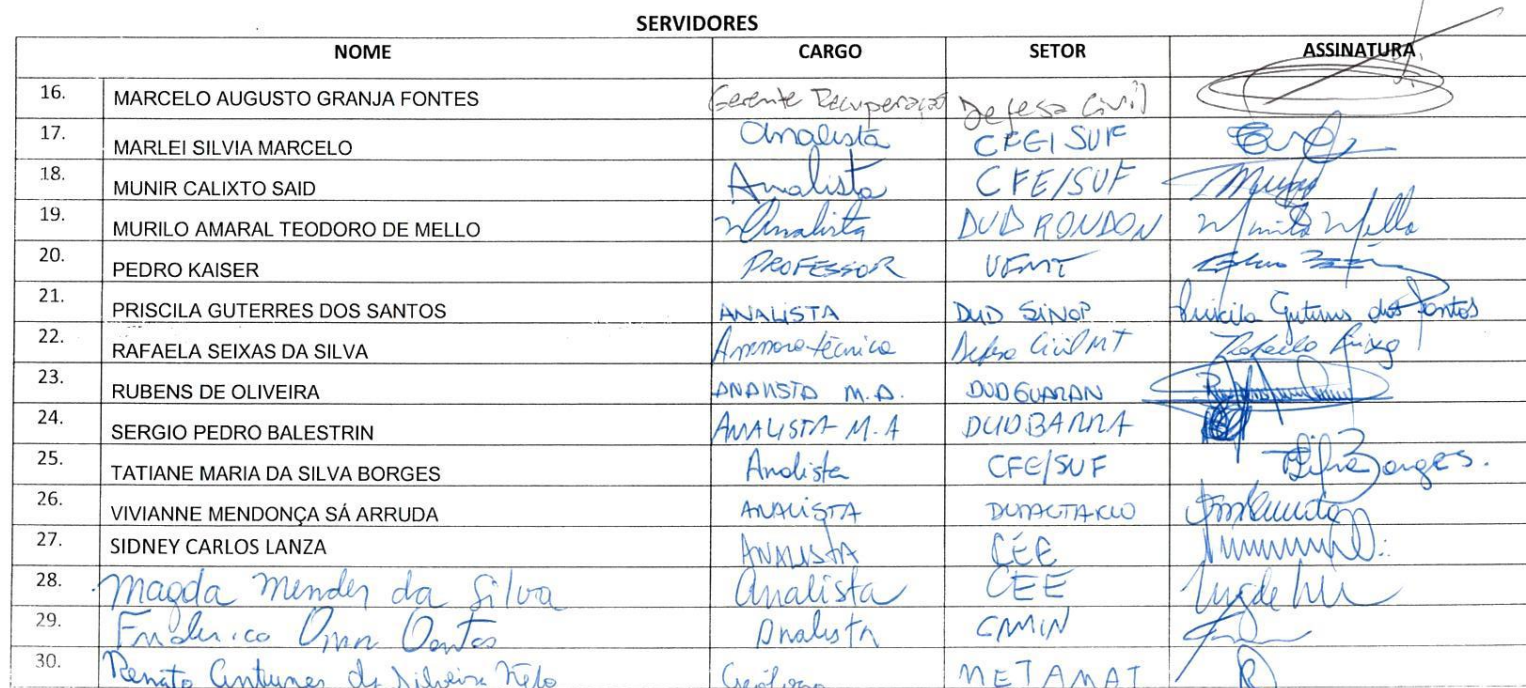 SERVIDORES
NOME CARGO SETOR ASSINATURA
16. MARCELO AUGUSTO GRANJA FONTES Gerente Recuperação Defesa Civil
17. MARLEI SILVIA MARCELO Analista CFE/SUF
18. MUNIR CALIXTO SAID Analista CFE/SUF Munir
19. MURILO AMARAL TEODORO DE MELLO Analista DUD RONDON Murilo Mello
20. PEDRO KAISER PROFESSOR UFMT
21. PRISCILA GUTERRES DOS SANTOS ANALISTA DUD SINOP Priscila Guterres dos Santos
22. RAFAELA SEIXAS DA SILVA Assessora técnica Defesa Civil MT Rafaela Seixas
23. RUBENS DE OLIVEIRA ANALISTA M.A. DUDGUARAN
24. SERGIO PEDRO BALESTRIN ANALISTA M.A DUDBARRA
25. TATIANE MARIA DA SILVA BORGES Analista CFE/SUF Borges.
26. VIVIANNE MENDONÇA SÁ ARRUDA ANALISTA
27. SIDNEY CARLOS LANZA ANALISTA CEE
28. Magda Mendes da Silva Analista CEE
29. Analista CMIN
30. Renato Antunes da Silveira Neto Geólogo METAMAT